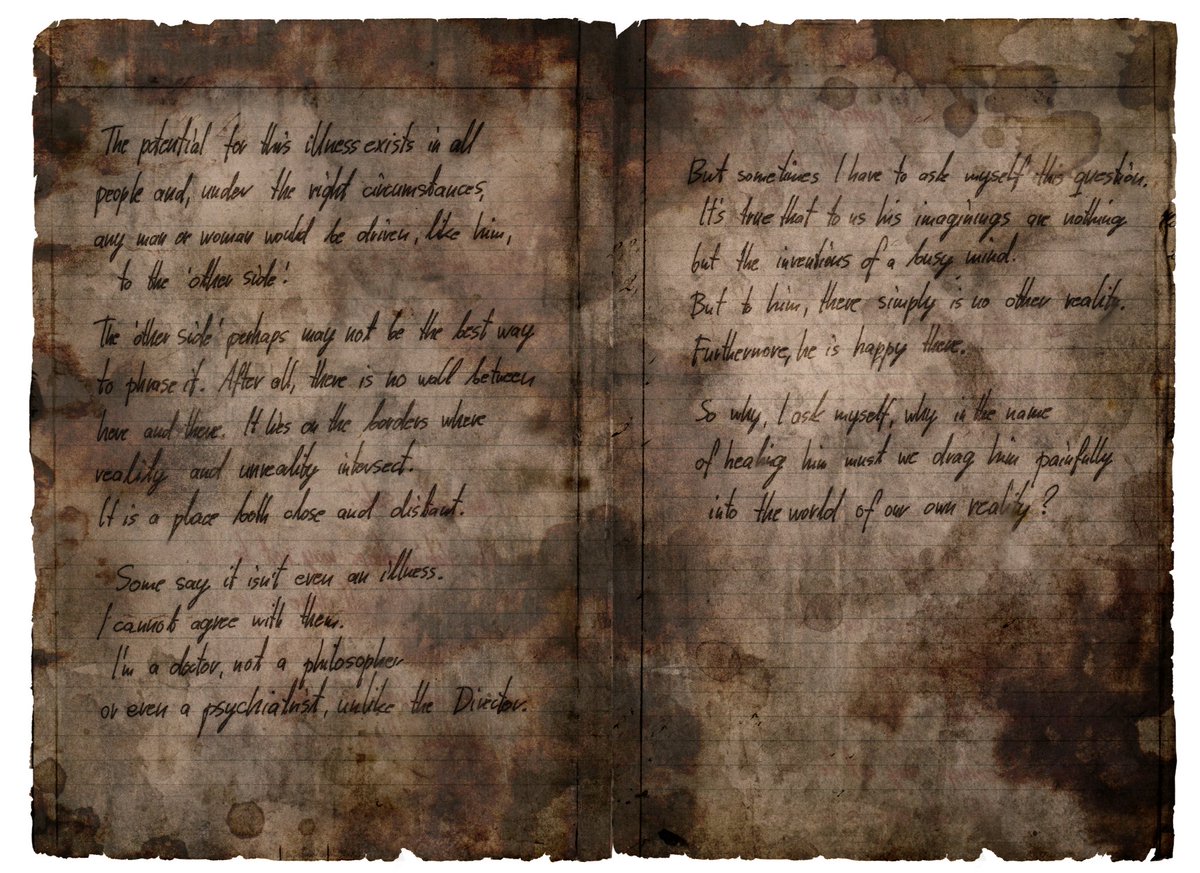 The potential for this illness exists in all
people and, under the right circumstances,
any man or woman would be driven, like him,
to the 'other side'.
The 'other side' perhaps may not be the best way
to phrase it. After all, there is no wall between
here and there. It lies on the borders where
reality and unreality intersect.
It is a place both close and distant.
Some say it isn't even an illness.
I cannot agree with them.
I'm a doctor, not a philosopher
or even a psychiatrist, unlike the Director.
But sometimes I have to ask myself this question.
It's true that to us his imaginings are nothing
but the inventions of a busy mind.
But to him, there simply is no other reality.
Furthermore, he is happy there.
So why, I ask myself, why in the name
of healing him must we drag him painfully
into the world of our own reality?